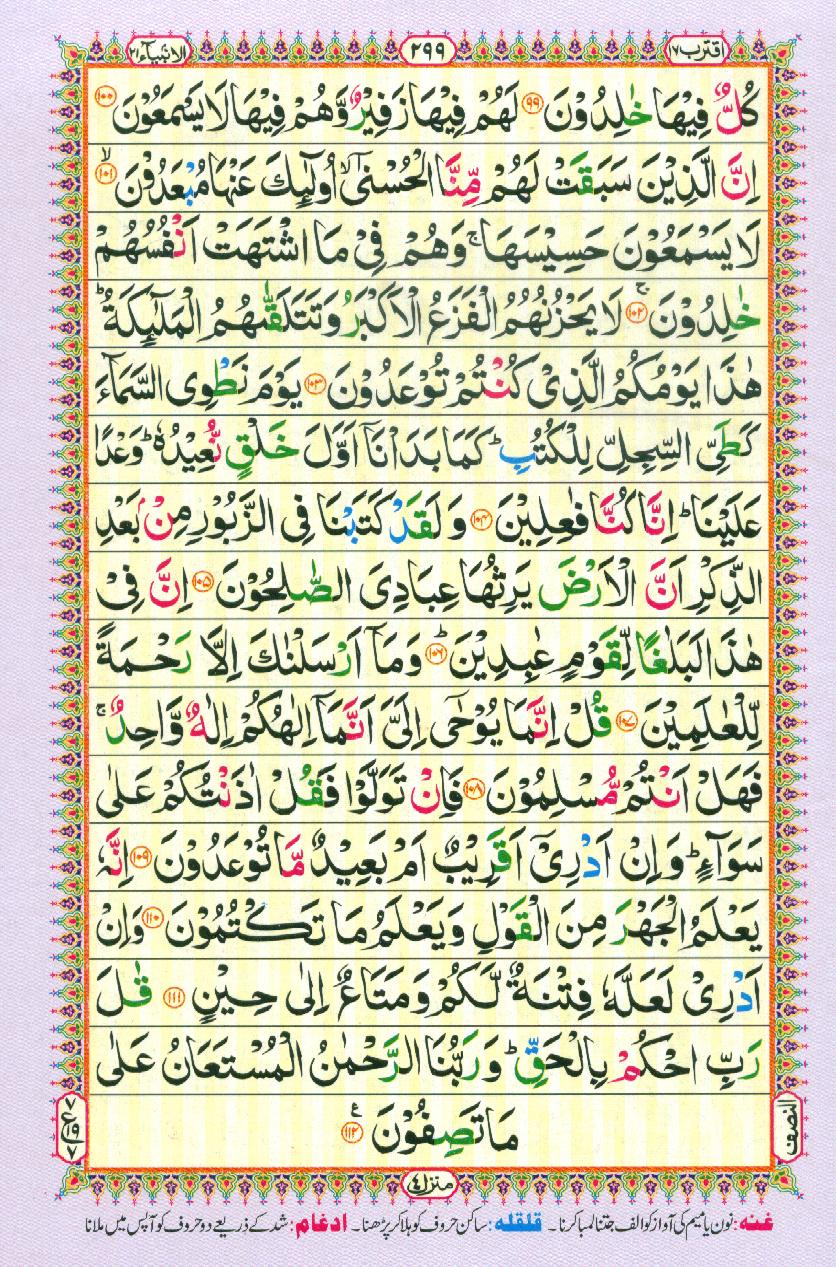 اقترب ١٧
٢٩٩
الانبیآء ٢١
كُلٌّ فِيْهَا خٰلِدُوْنَ ۝٩٩ لَهُمْ فِيْهَا زَفِيْرٌ وَّهُمْ فِيْهَا لَا يَسْمَعُوْنَ ۝١٠٠
اِنَّ الَّذِيْنَ سَبَقَتْ لَهُمْ مِّنَّا الْحُسْنٰۤى ۙ اُولٰٓئِكَ عَنْهَا مُبْعَدُوْنَ ۝١٠١ۙ
لَا يَسْمَعُوْنَ حَسِيْسَهَا ۚ وَهُمْ فِيْ مَا اشْتَهَتْ اَنْفُسُهُمْ
خٰلِدُوْنَ ۝١٠٢ۚ لَا يَحْزُنُهُمُ الْفَزَعُ الْاَكْبَرُ وَتَتَلَقّٰىهُمُ الْمَلٰٓئِكَةُ ؕ
هٰذَا يَوْمُكُمُ الَّذِيْ كُنْتُمْ تُوْعَدُوْنَ ۝١٠٣ يَوْمَ نَطْوِى السَّمَآءَ
كَطَيِّ السِّجِلِّ لِلْكُتُبِ ؕ كَمَا بَدَاْنَاۤ اَوَّلَ خَلْقٍ نُّعِيْدُهٗ ؕ وَعْدًا
عَلَيْنَا ؕ اِنَّا كُنَّا فٰعِلِيْنَ ۝١٠٤ وَلَقَدْ كَتَبْنَا فِى الزَّبُوْرِ مِنْۢ بَعْدِ
الذِّكْرِ اَنَّ الْاَرْضَ يَرِثُهَا عِبَادِىَ الصّٰلِحُوْنَ ۝١٠٥ اِنَّ فِيْ
هٰذَا لَبَلٰغًا لِّقَوْمٍ عٰبِدِيْنَ ۝١٠٦ؕ وَمَاۤ اَرْسَلْنٰكَ اِلَّا رَحْمَةً
لِّلْعٰلَمِيْنَ ۝١٠٧ قُلْ اِنَّمَا يُوْحٰۤى اِلَىَّ اَنَّمَاۤ اِلٰهُكُمْ اِلٰهٌ وَّاحِدٌ ۚ
فَهَلْ اَنْتُمْ مُّسْلِمُوْنَ ۝١٠٨ فَاِنْ تَوَلَّوْا فَقُلْ اٰذَنْتُكُمْ عَلٰى
سَوَآءٍ ؕ وَاِنْ اَدْرِيْۤ اَقَرِيْبٌ اَمْ بَعِيْدٌ مَّا تُوْعَدُوْنَ ۝١٠٩ اِنَّهٗ
يَعْلَمُ الْجَهْرَ مِنَ الْقَوْلِ وَيَعْلَمُ مَا تَكْتُمُوْنَ ۝١١٠ وَاِنْ
اَدْرِيْ لَعَلَّهٗ فِتْنَةٌ لَّكُمْ وَمَتَاعٌ اِلٰى حِيْنٍ ۝١١١ قٰلَ
رَبِّ احْكُمْ بِالْحَقِّ ؕ وَرَبُّنَا الرَّحْمٰنُ الْمُسْتَعَانُ عَلٰى
مَا تَصِفُوْنَ ۝١١٢ع
النصف
٧ ع ١٩ ٧
منزل ٤
غنه: نون یا میم کی آواز کو الف جتنا لمبا کرنا۔ قلقله: ساکن حروف کو ہلا کر پڑھنا۔ ادغام: شد کے ذریعے دو حروف کو آپس میں ملانا